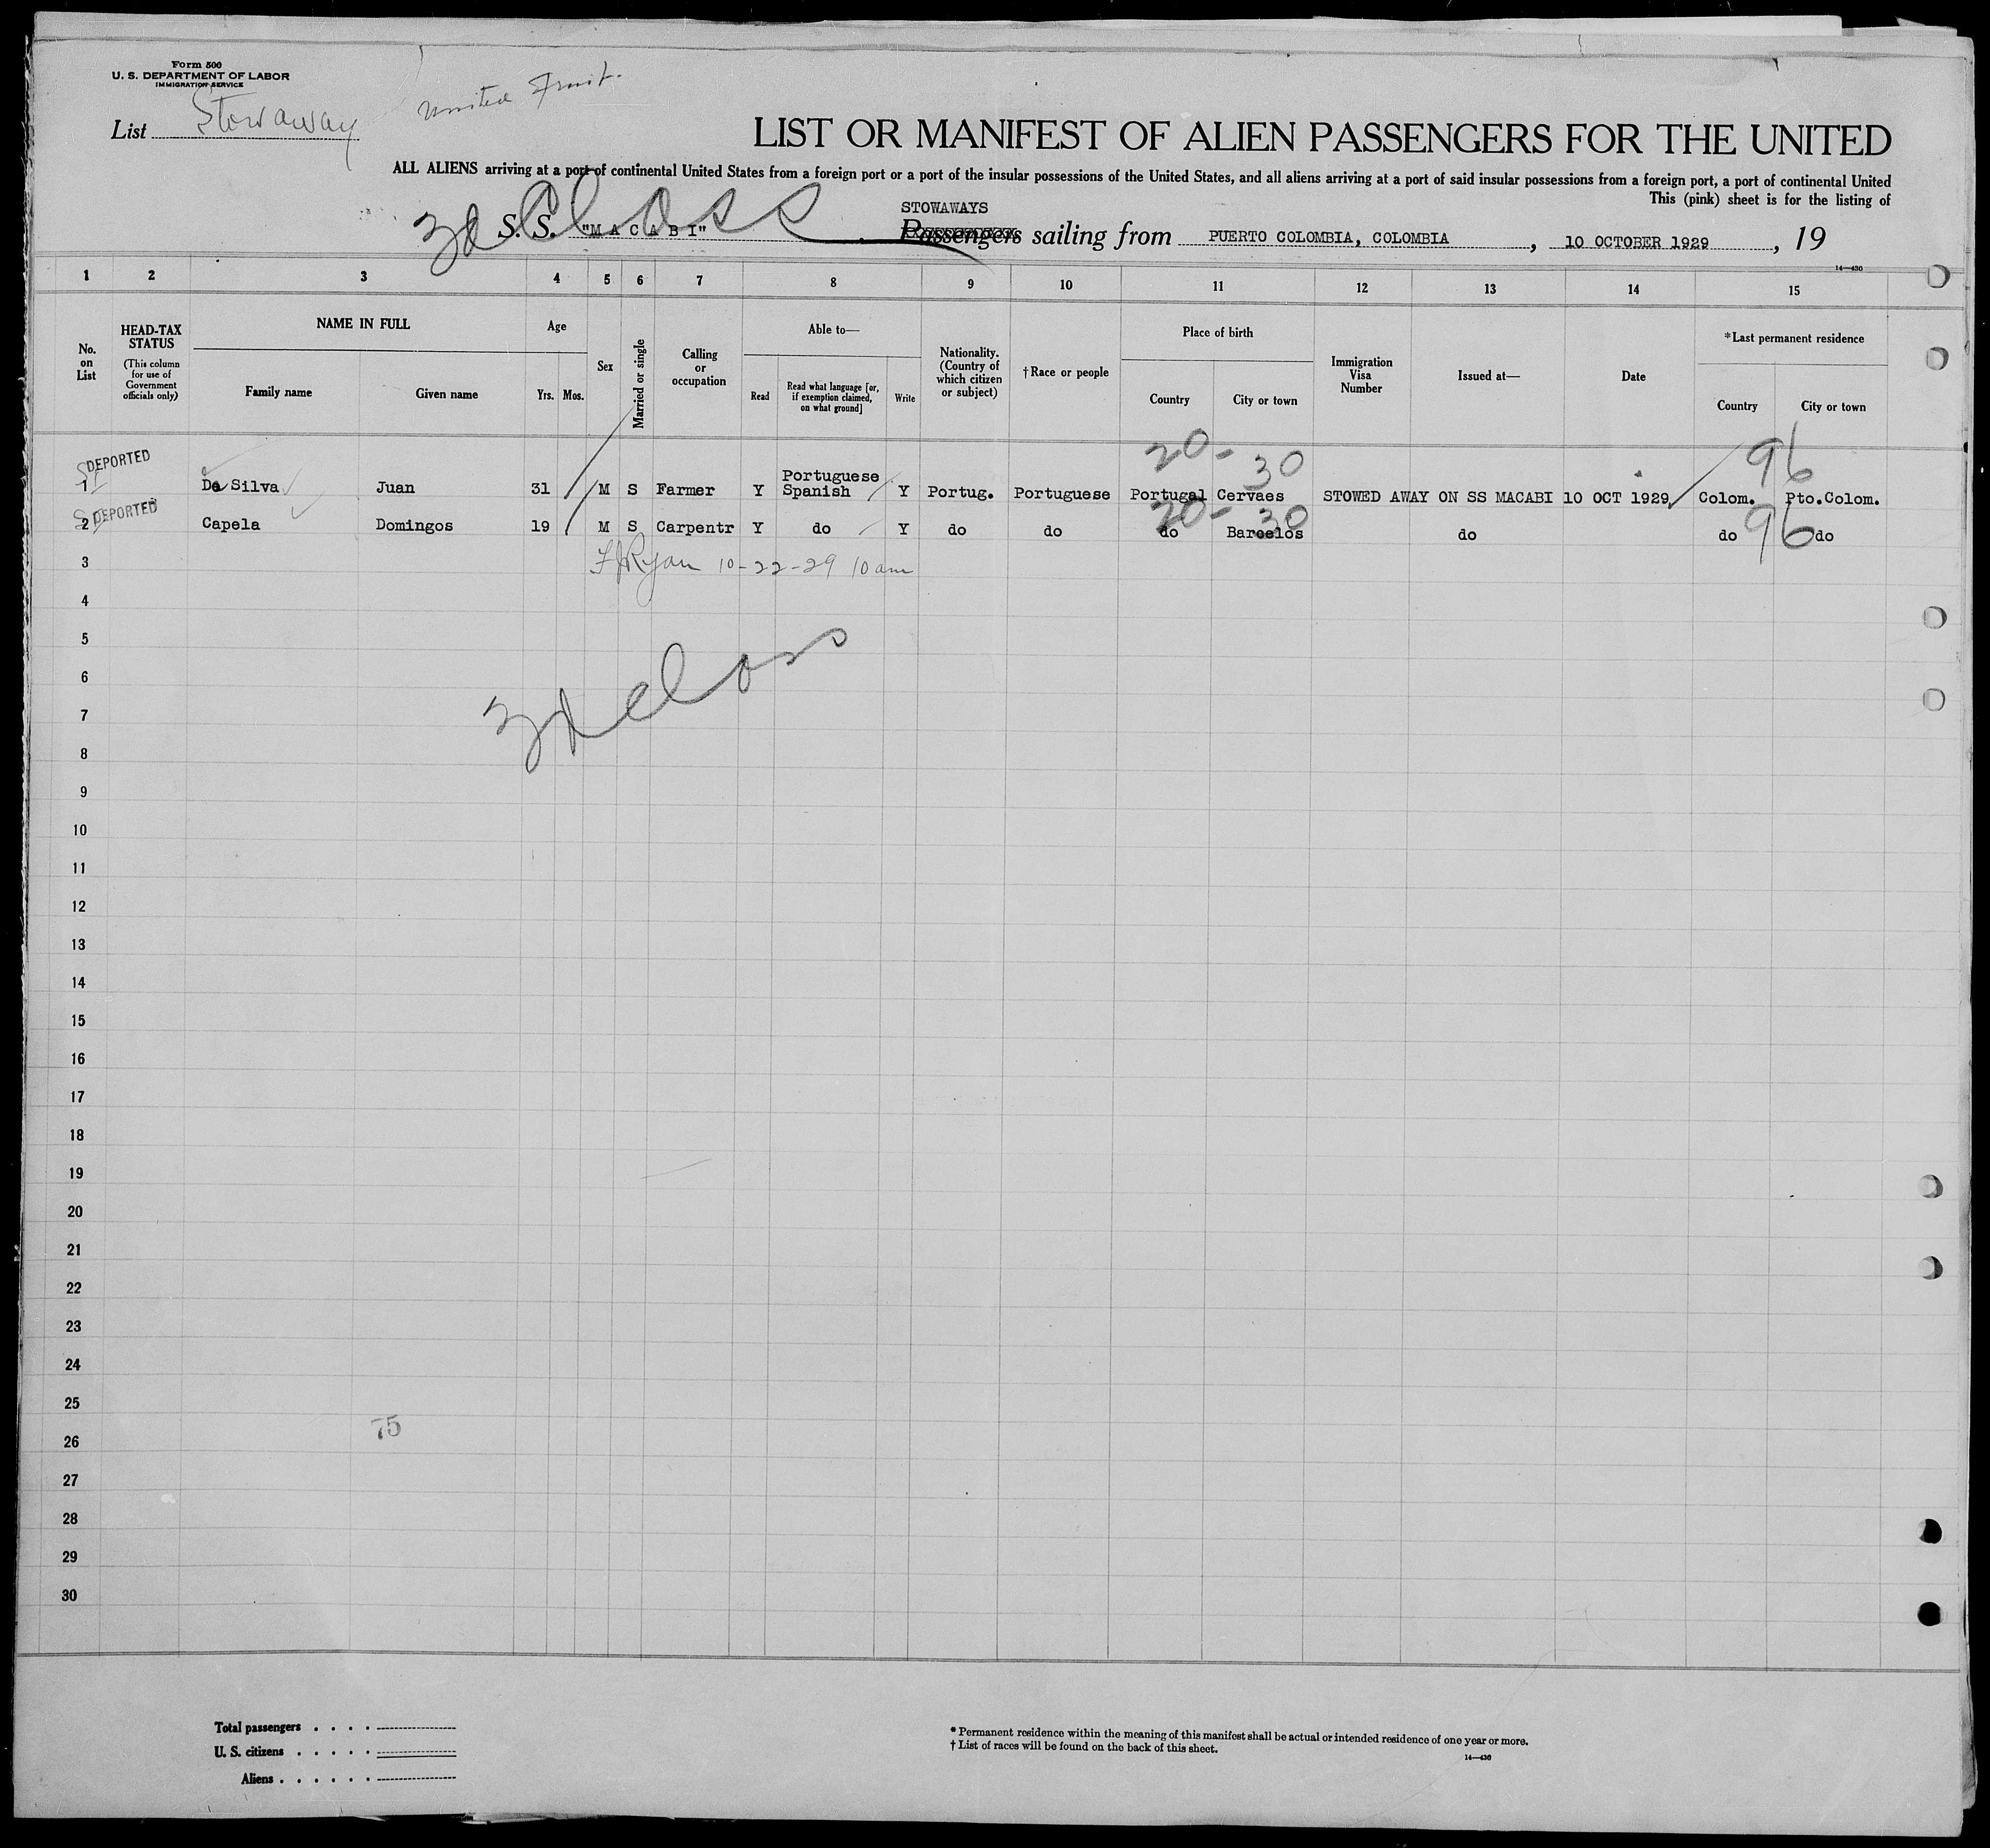 Form 500
U. S. DEPARTMENT OF LABOR
IMMIGRATION SERVICE
List Stowaway
United Fruit.
LIST OR MANIFEST OF ALIEN PASSENGERS FOR THE UNITED
ALL ALIENS arriving at a port of continental United States from a foreign port or a port of the insular possessions of the United States, and all aliens arriving at a port of said insular possessions from a foreign port, a port of continental United
This (pink) sheet is for the listing of
3d Class
STOWAWAYS
S. S. "M A C A B I" Passengers sailing from PUERTO COLOMBIA, COLOMBIA , 10 OCTOBER 1929 , 19
14—430
1 2 3 4 5 6 7 8 9 10 11 12 13 14 15
No. on List
HEAD-TAX STATUS
(This column for use of Government officials only)
NAME IN FULL
Family name Given name
Age
Yrs. Mos.
Sex
Married or single
Calling or occupation
Able to—
Read
Read what language [or, if exemption claimed, on what ground]
Write
Nationality. (Country of which citizen or subject)
†Race or people
Place of birth
Country City or town
Immigration Visa Number
Issued at—
Date
*Last permanent residence
Country City or town
20-30 96
DEPORTED
1 De Silva Juan 31 M S Farmer Y Portuguese Spanish Y Portug. Portuguese Portugal Cervaes STOWED AWAY ON SS MACABI 10 OCT 1929 Colom. Pto.Colom.
DEPORTED
20-30 96
2 Capela Domingos 19 M S Carpentr Y do Y do do do Barcelos do do do
3 F J Ryan 10-22-29 10 am
4
5
3d class
6
7
8
9
10
11
12
13
14
15
16
17
18
19
20
21
22
23
24
25
75
26
27
28
29
30
Total passengers . . . .
U. S. citizens . . . . .
Aliens . . . . . .
* Permanent residence within the meaning of this manifest shall be actual or intended residence of one year or more.
† List of races will be found on the back of this sheet.
14—430